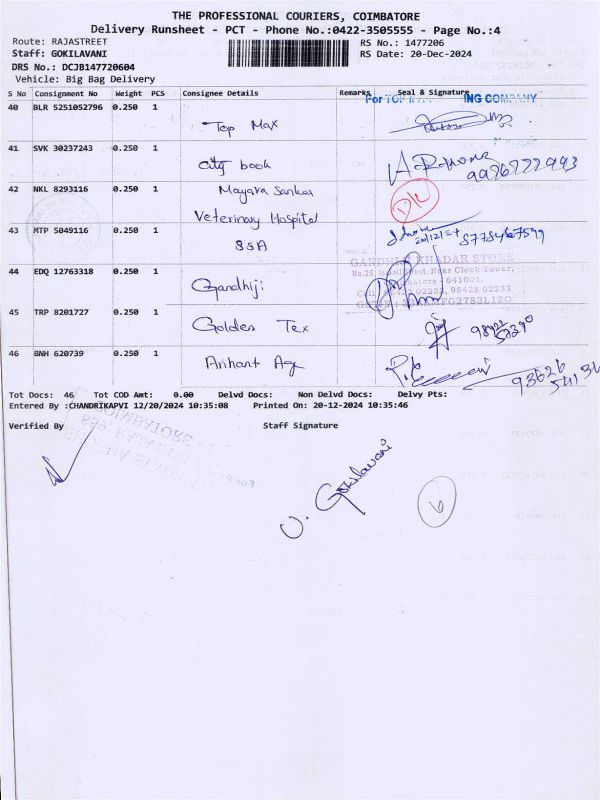 THE PROFESSIONAL COURIERS, COIMBATORE
Delivery Runsheet - PCT - Phone No.:0422-3505555 - Page No.:4
Route: RAJASTREET
RS No.: 1477206
Staff: GOKILAVANI
RS Date: 20-Dec-2024
DRS No.: DCJB147720604
Vehicle: Big Bag Delivery
S No Consignment No Weight PCS Consignee Details Remarks Seal & Signature
For TOP ING COMPANY
40 BLR 5251052796 0.250 1
Top Max
41 SVK 30237243 0.250 1
City book
42 NKL 8293116 0.250 1 Mayava Sankar
Veterinary Hospital
43 MTP 5049116 0.250 1
SSA
GANDHIJI KHADAR STORE
Near Clock Tower,
641001.
98428 02233
44 EDQ 12763318 0.250 1
Gandhiji
45 TRP 8201727 0.250 1
Golden Tex
46 BNH 620739 0.250 1
Arihant Ag
93626
Tot Docs: 46 Tot COD Amt: 0.00 Delvd Docs: Non Delvd Docs: Delvy Pts:
Entered By :CHANDRIKAPVI 12/20/2024 10:35:08 Printed On: 20-12-2024 10:35:46
Verified By Staff Signature
V. Gokilavani
6